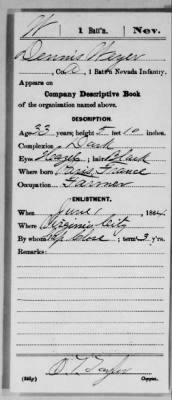 W | 1 Batt'n. | Nev.
Dennis Wager
, Co. A, 1 Batt'n Nevada Infantry.
Appears on
Company Descriptive Book
of the organization named above.
DESCRIPTION.
Age 33 years; height 5 feet 10 inches.
Complexion Dark
Eyes Hazel; hair Black
Where born Paris, France
Occupation Farmer
ENLISTMENT.
When June 1, 1864.
Where Virginia City
By whom ; term 3 y'rs.
Remarks:
Copyist.